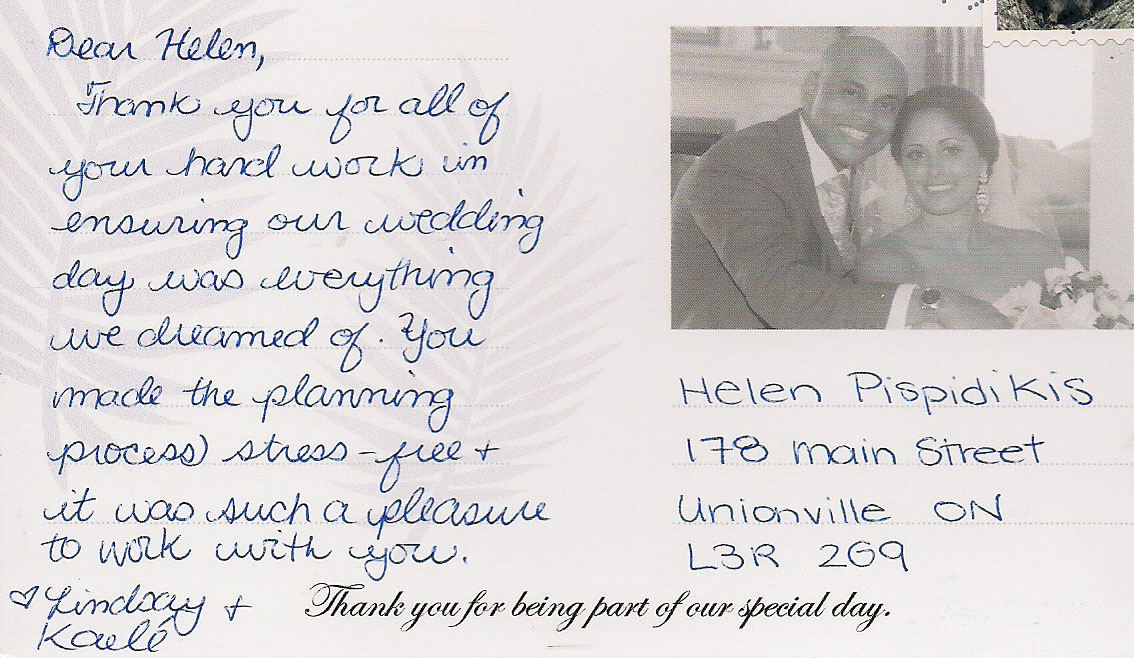 Dear Helen,
Thank you for all of
your hard work in
ensuring our wedding
day was everything
we dreamed of. You
made the planning
process stress-free +
it was such a pleasure
to work with you.
♡ Lindsay +
Kaelé
Helen Pispidikis
178 Main Street
Unionville ON
L3R 2G9
Thank you for being part of our special day.